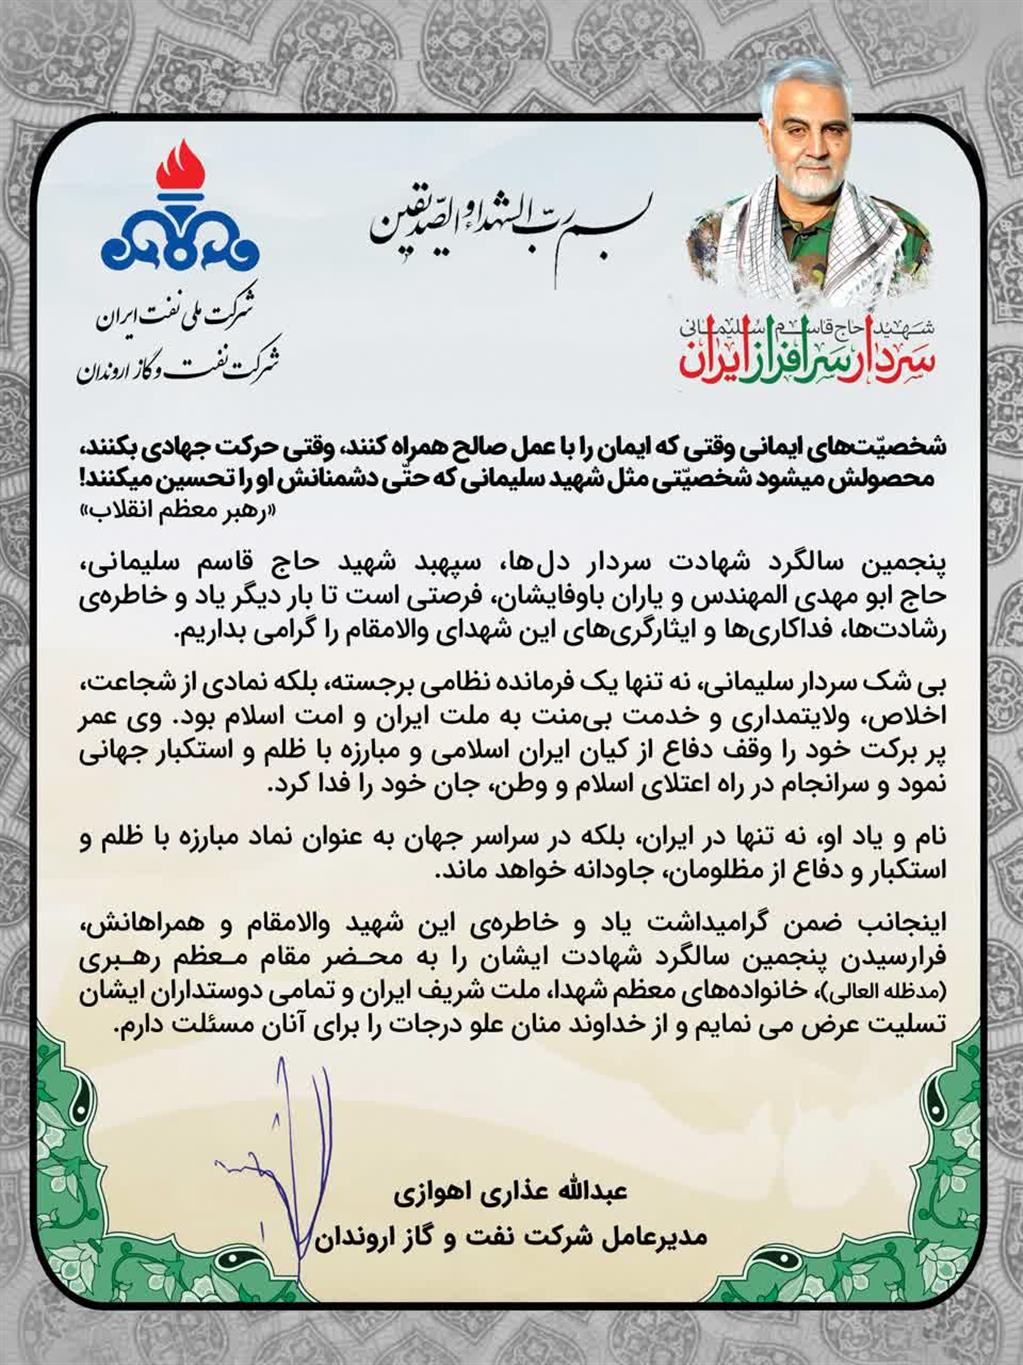 بسم ربّ الشهداء و الصّدیقین
شرکت ملی نفت ایران
شرکت نفت و گاز اروندان
شهید حاج قاسم سلیمانی
سردار سرافراز ایران
شخصیّت‌های ایمانی وقتی که ایمان را با عمل صالح همراه کنند، وقتی حرکت جهادی بکنند،
محصولش میشود شخصیّتی مثل شهید سلیمانی که حتّی دشمنانش او را تحسین میکنند!
«رهبر معظم انقلاب»
پنجمین سالگرد شهادت سردار دل‌ها، سپهبد شهید حاج قاسم سلیمانی،
حاج ابو مهدی المهندس و یاران باوفایشان، فرصتی است تا بار دیگر یاد و خاطره‌ی
رشادت‌ها، فداکاری‌ها و ایثارگری‌های این شهدای والامقام را گرامی بداریم.
بی شک سردار سلیمانی، نه تنها یک فرمانده نظامی برجسته، بلکه نمادی از شجاعت،
اخلاص، ولایتمداری و خدمت بی‌منت به ملت ایران و امت اسلام بود. وی عمر
پر برکت خود را وقف دفاع از کیان ایران اسلامی و مبارزه با ظلم و استکبار جهانی
نمود و سرانجام در راه اعتلای اسلام و وطن، جان خود را فدا کرد.
نام و یاد او، نه تنها در ایران، بلکه در سراسر جهان به عنوان نماد مبارزه با ظلم و
استکبار و دفاع از مظلومان، جاودانه خواهد ماند.
اینجانب ضمن گرامیداشت یاد و خاطره‌ی این شهید والامقام و همراهانش،
فرارسیدن پنجمین سالگرد شهادت ایشان را به محضر مقام معظم رهبری
(مدظله العالی)، خانواده‌های معظم شهدا، ملت شریف ایران و تمامی دوستداران ایشان
تسلیت عرض می نمایم و از خداوند منان علو درجات را برای آنان مسئلت دارم.
عبدالله عذاری اهوازی
مدیرعامل شرکت نفت و گاز اروندان